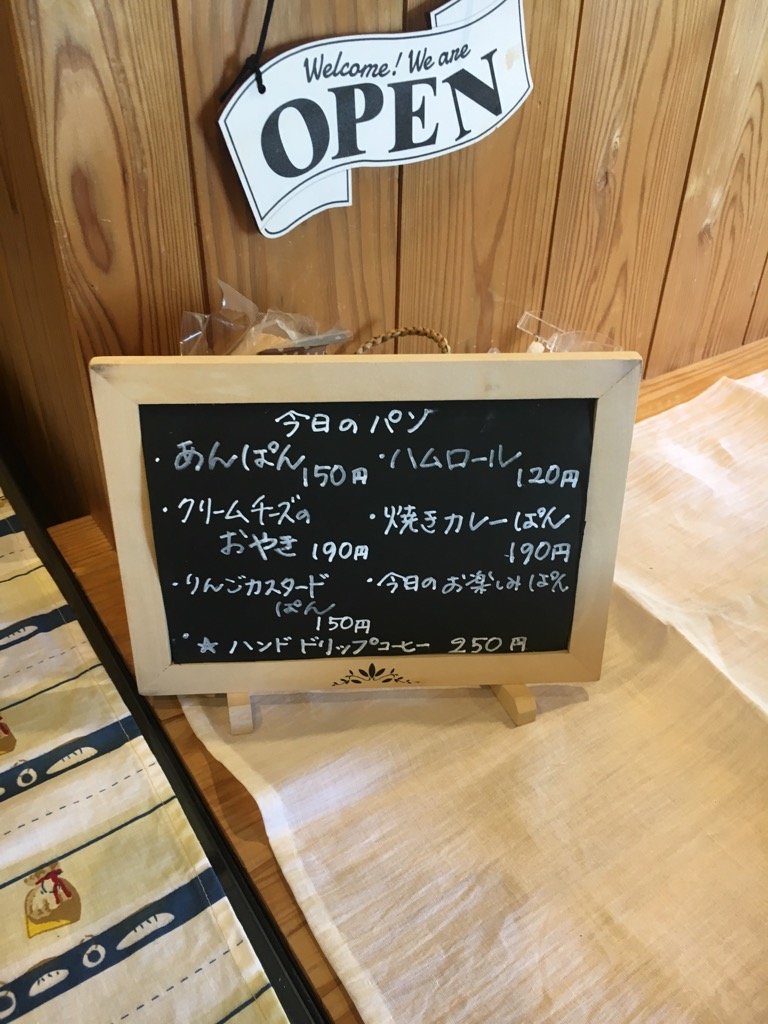 Welcome! We are
OPEN
今日のパン
・あんぱん
150円
・クリームチーズの
おやき 190円
・りんごカスタード
ぱん
150円
・ハムロール
120円
・焼きカレーぱん
190円
・今日のお楽しみぱん
・☆ ハンドドリップコーヒー 250円